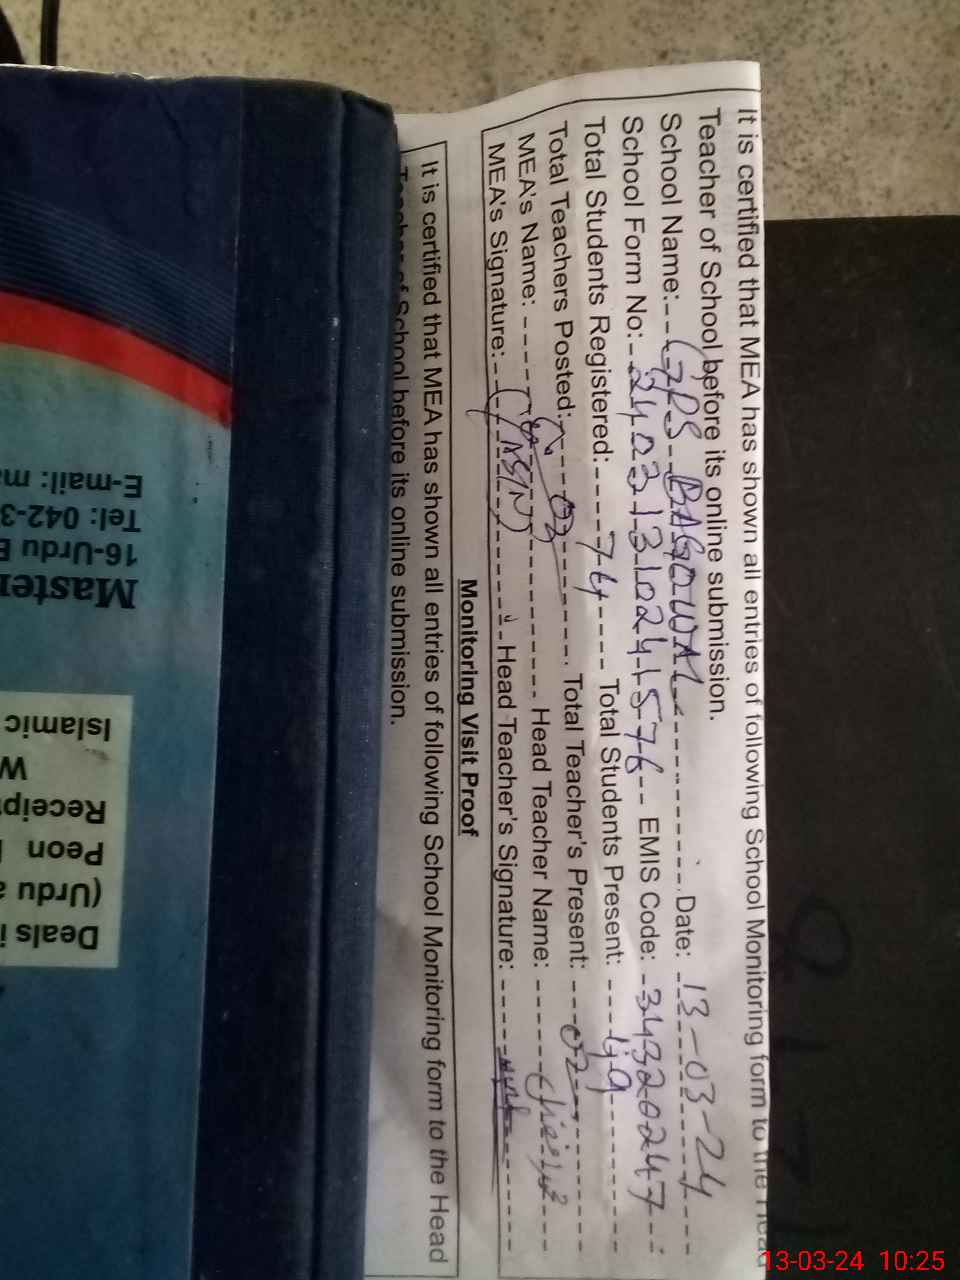 It is certified that MEA has shown all entries of following School Monitoring form to the Head
Teacher of School before its online submission.
School Name: GPS BAGOWAL Date: 13-03-24
School Form No: 240313102441576 EMIS Code: 34320247
Total Students Registered: 74 Total Students Present: 49
Total Teachers Posted: 02 Total Teacher's Present: 02
MEA's Name: Head Teacher Name:
MEA's Signature: (YASIN) Head Teacher's Signature:
Monitoring Visit Proof
It is certified that MEA has shown all entries of following School Monitoring form to the Head
Teacher of School before its online submission.
Master
16-Urdu B
Tel: 042-3
E-mail: ma
Deals i
(Urdu a
Peon
Receip
W
Islamic
13-03-24 10:25